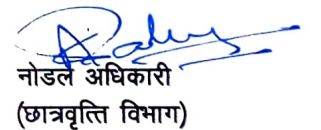 नोडल अधिकारी
(छात्रवृत्ति विभाग)